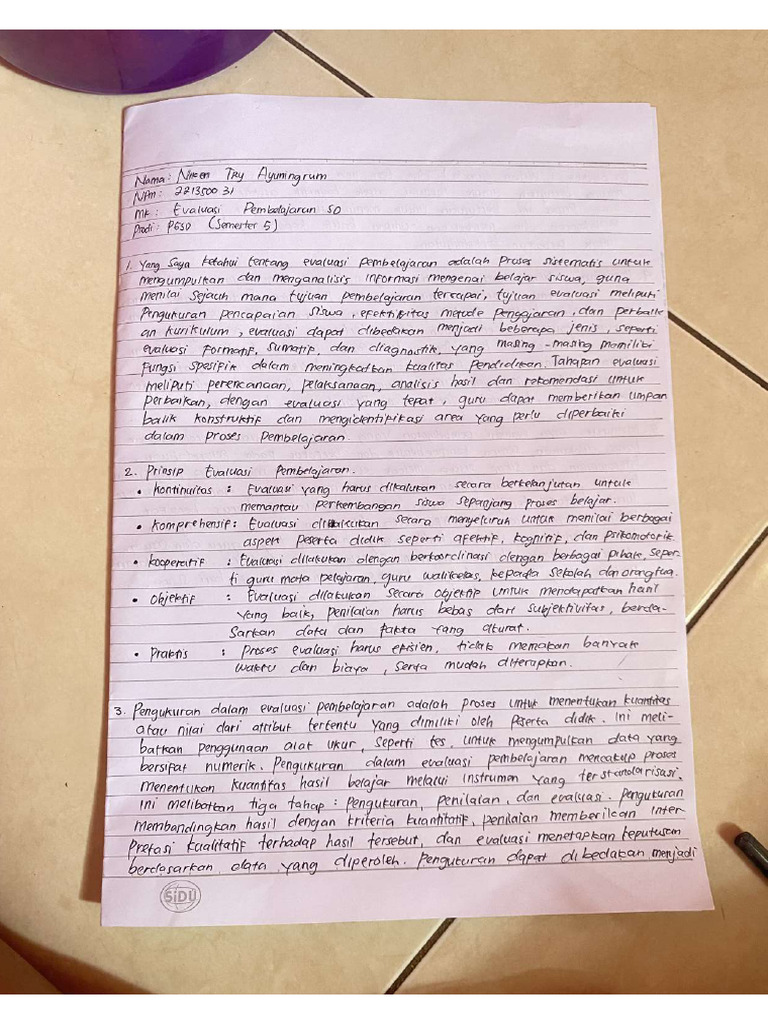 Nama: Niken Try Ayuningrum
NPM: 2213500 31
MK: Evaluasi Pembelajaran SD
Prodi: PGSD (Semester 5)
1. Yang saya ketahui tentang evaluasi pembelajaran adalah proses sistematis untuk
mengumpulkan dan menganalisis informasi mengenai belajar siswa, guna
menilai sejauh mana tujuan pembelajaran tercapai, tujuan evaluasi meliputi
Pengukuran pencapaian siswa, efektifitas metode pengajaran, dan perbaik
an kurikulum, evaluasi dapat dibedakan menjadi beberapa jenis, seperti
evaluasi formatif, sumatif, dan diagnostik, yang masing-masing memiliki
fungsi spesifik dalam meningkatkan kualitas pendidikan. Tahapan evaluasi
meliputi perencanaan, pelaksanaan, analisis hasil dan rekomendasi untuk
perbaikan, dengan evaluasi yang tepat, guru dapat memberikan umpan
balik konstruktif dan mengidentifikasi area yang perlu diperbaiki
dalam proses pembelajaran.
2. Prinsip Evaluasi Pembelajaran.
• Kontinuitas : Evaluasi yang harus dilakukan secara berkelanjutan untuk
memantau perkembangan siswa sepanjang proses belajar.
• Komprehensif: Evaluasi dilakukan secara menyeluruh untuk menilai berbagai
aspek peserta didik seperti afektif, kognitif, dan psikomotorik.
• Kooperatif : Evaluasi dilakukan dengan berkoordinasi dengan berbagai pihak, seper-
ti guru mata pelajaran, guru walikelas, kepala sekolah dan orang tua.
• Objektif : Evaluasi dilakukan secara objektif untuk mendapatkan hasil
yang baik, penilaian harus bebas dari subjektivitas, berda-
sarkan data dan fakta yang akurat.
• Praktis : Proses evaluasi harus efisien, tidak memakan banyak
waktu dan biaya, serta mudah diterapkan.
3. Pengukuran dalam evaluasi pembelajaran adalah proses untuk menentukan kuantitas
atau nilai dari atribut tertentu yang dimiliki oleh peserta didik. Ini meli-
batkan penggunaan alat ukur, seperti tes, untuk mengumpulkan data yang
bersifat numerik. Pengukuran dalam evaluasi pembelajaran mencakup proses
menentukan kuantitas hasil belajar melalui instrumen yang terstandarisasi.
Ini melibatkan tiga tahap : Pengukuran, penilaian, dan evaluasi. Pengukuran
membandingkan hasil dengan kriteria kuantitatif, penilaian memberikan inter
pretasi kualitatif terhadap hasil tersebut, dan evaluasi menetapkan keputusan
berdasarkan data yang diperoleh. Pengukuran dapat dibedakan menjadi
SiDU